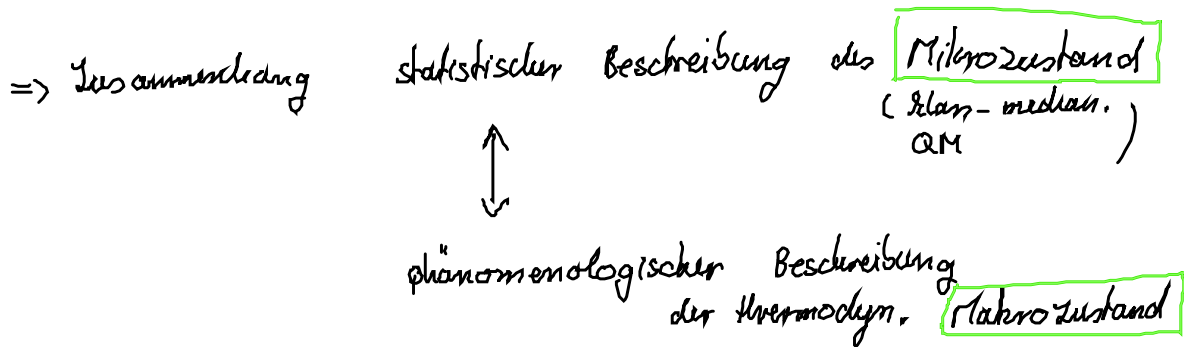 => Zusammenhang statistischer Beschreibung des Mikrozustand
( klass-mechan.
QM )
↕
phänomenologischer Beschreibung
der thermodyn. Makrozustand